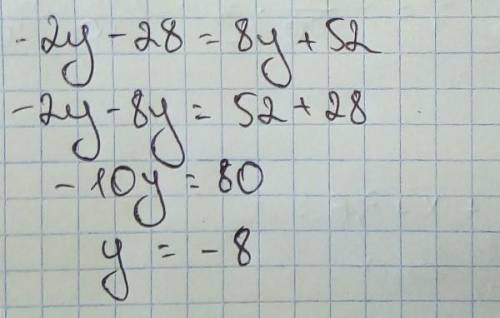 -2y - 28 = 8y + 52
-2y - 8y = 52 + 28
-10y = 80
y = -8